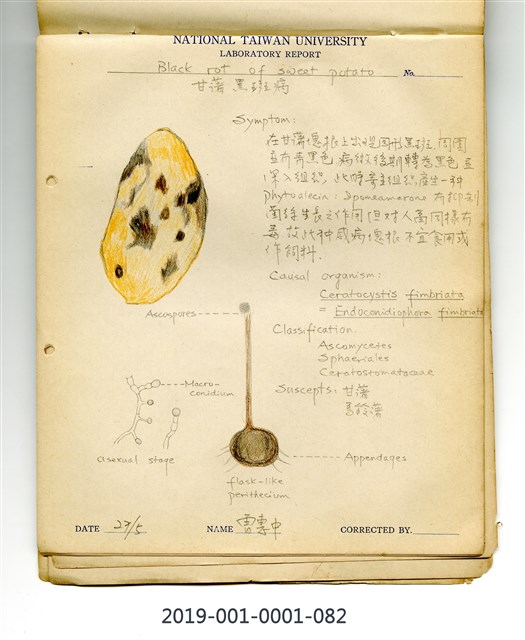 NATIONAL TAIWAN UNIVERSITY
LABORATORY REPORT
Black rot of sweet potato No.
甘藷黑斑病
Symptom:
在甘藷塊根上出現圓形黑斑,周圍
並有青黑色,病徵後期轉為黑色並
深入組織,此時寄主組織產生一种
phytoalecin: Ipomeamarone 有抑制
菌絲生長之作用,但对人畜同樣有
毒,故此种感病塊根不宜食用或
作飼料.
Causal organism:
Ceratocystis fimbriata
= Endoconidiophora fimbriata
Ascospores
Classification.
Ascomycetes
Sphaeriales
Ceratostomataceae
Suscepts: 甘藷
馬鈴薯
Macro-
conidium
asexual stage
Appendages
flask-like
perithecium
DATE 27/5 NAME CORRECTED BY.
2019-001-0001-082